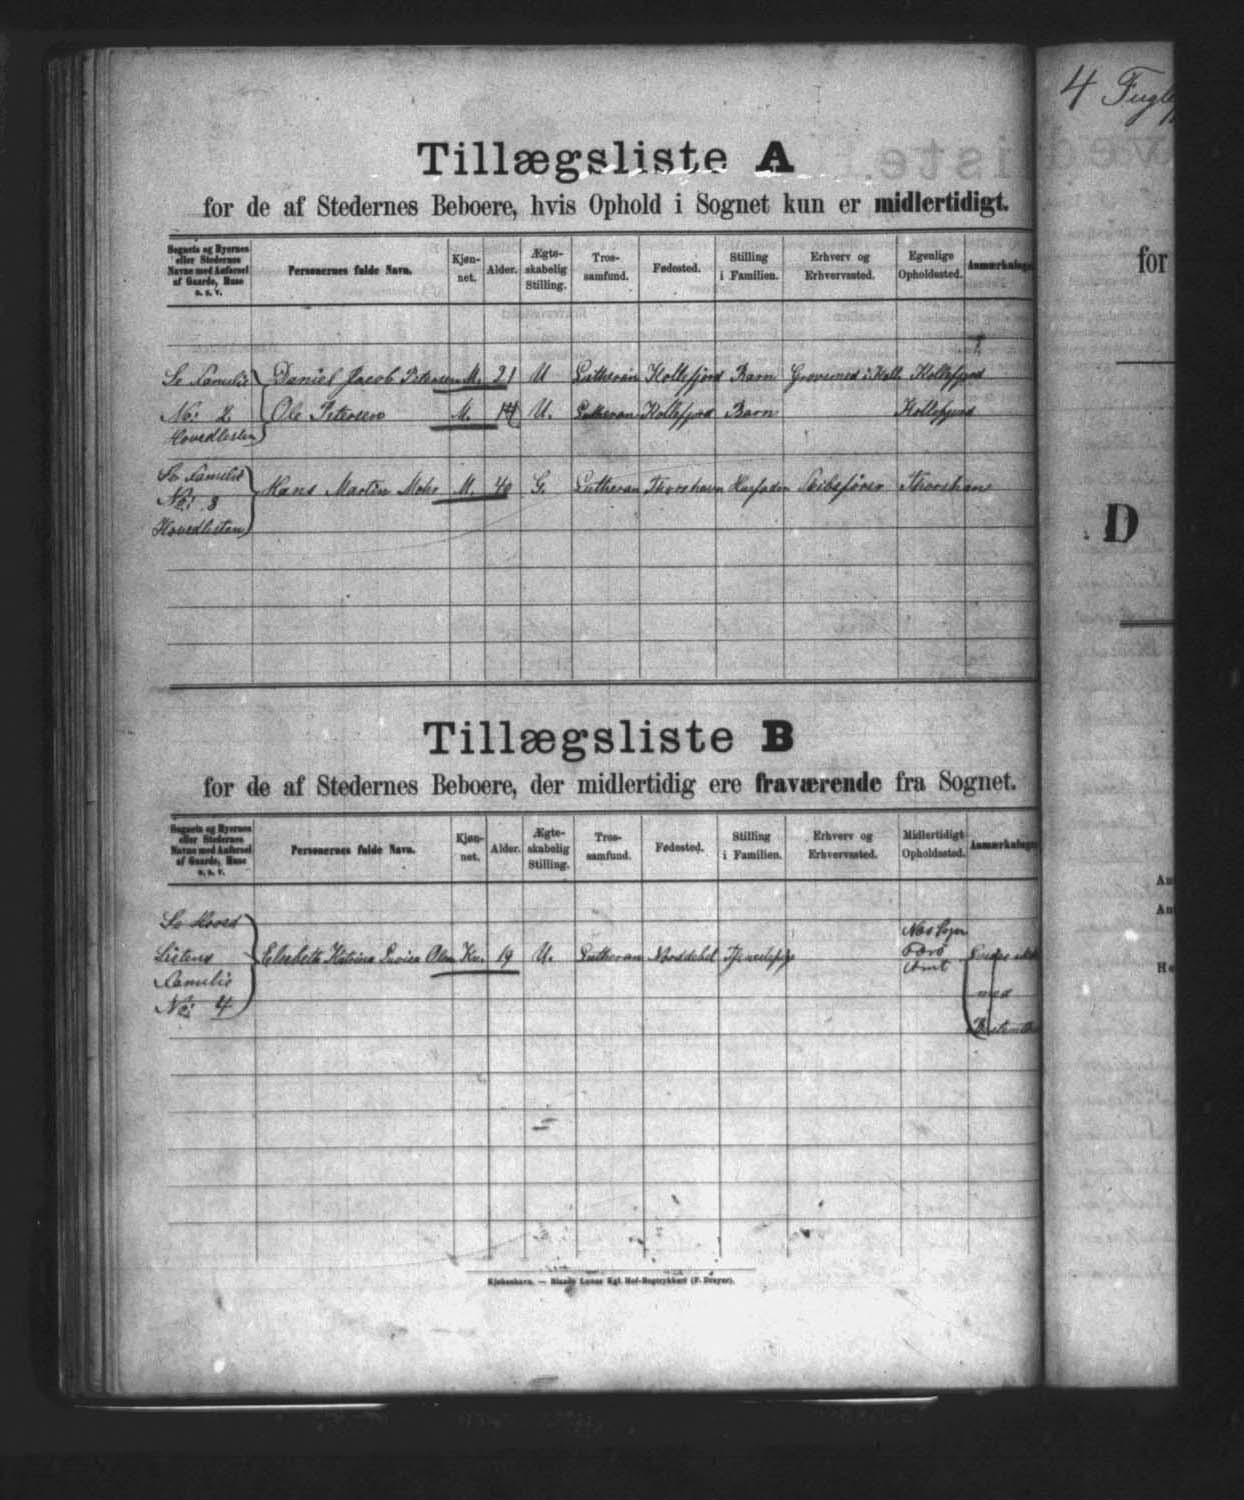 4 Fugle
Tillægsliste A
for de af Stedernes Beboere, hvis Ophold i Sognet kun er midlertidigt.
Sognets og Byernes eller Stedernes Navne med Anførsel af Gaarde, Huse o. s. v.
Personernes fulde Navn.
Kjøn-
net.
Alder.
Ægte-
skabelig
Stilling.
Tros-
samfund.
Fødested.
Stilling
i Familien.
Erhverv og
Erhvervssted.
Egenlige
Opholdssted.
Se Familie Daniel Jacob Petersen M. 21 U Lutheran Kollefjord Barn Kollefjord
No: 2 Ole Petersen M. U. Lutheran Kollefjord Barn Kollefjord
Hovedlisten
Se Familie
No: 3 Hans Martin Mohr M. 40 G. Lutheran Thorshavn Husfader Skibsfører Thorshavn
Hovedlisten
Tillægsliste B
for de af Stedernes Beboere, der midlertidig ere fraværende fra Sognet.
Sognets og Byernes
eller Stedernes
Navne med Anførsel
af Gaarde, Huse
o. s. v.
Personernes fulde Navn.
Kjøn-
net.
Alder.
Ægte-
skabelig
Stilling.
Tros-
samfund.
Fødested.
Stilling
i Familien.
Erhverv og
Erhvervssted.
Midlertidigt
Opholdssted.
Se Hoved
Listens Elsebeth Katrina Olsen Kv. 19 U. Lutheran
Familie
No: 4
Næs Sogn
Færø
Amt
med
Kjøbenhavn. — Bianco Lunos Kgl. Hof-Bogtrykkeri (F. Dreyer).
for
D